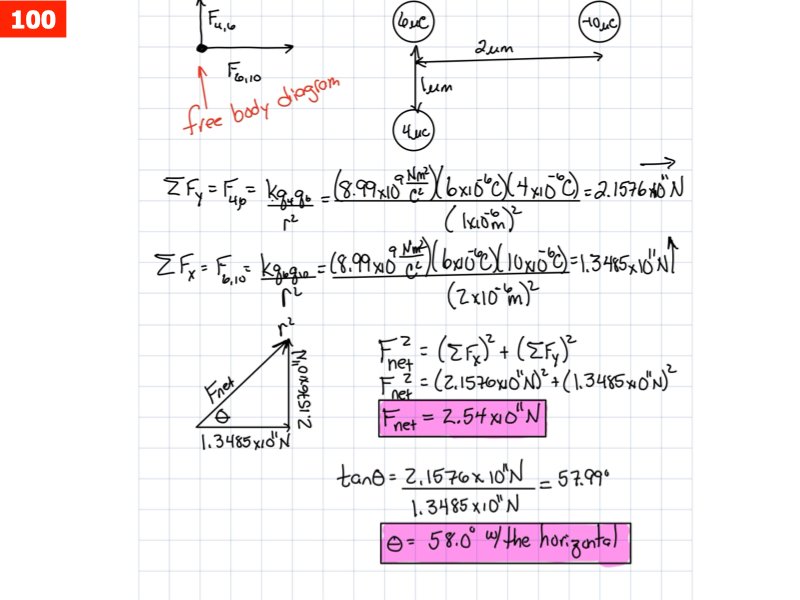 100
F₄,₆
F₆,₁₀
free body diagram
6µC
-10µC
2µm
1µm
4µC
ΣFy = F₄,₆ = kq₄q₆/r² = (8.99x10⁹ Nm²/C²)(6x10⁻⁶C)(4x10⁻⁶C)/(1x10⁻⁶m)² = 2.1576x10¹¹N →
ΣFx = F₆,₁₀ = kq₆q₁₀/r² = (8.99x10⁹ Nm²/C²)(6x10⁻⁶C)(10x10⁻⁶C)/(2x10⁻⁶m)² = 1.3485x10¹¹N ↑
r²
Fnet
θ
2.1576x10¹¹N
1.3485x10¹¹N
Fnet² = (ΣFx)² + (ΣFy)²
Fnet² = (2.1576x10¹¹N)² + (1.3485x10¹¹N)²
Fnet = 2.54x10¹¹N
tanθ = 2.1576x10¹¹N/1.3485x10¹¹N = 57.99°
θ = 58.0° w/the horizontal